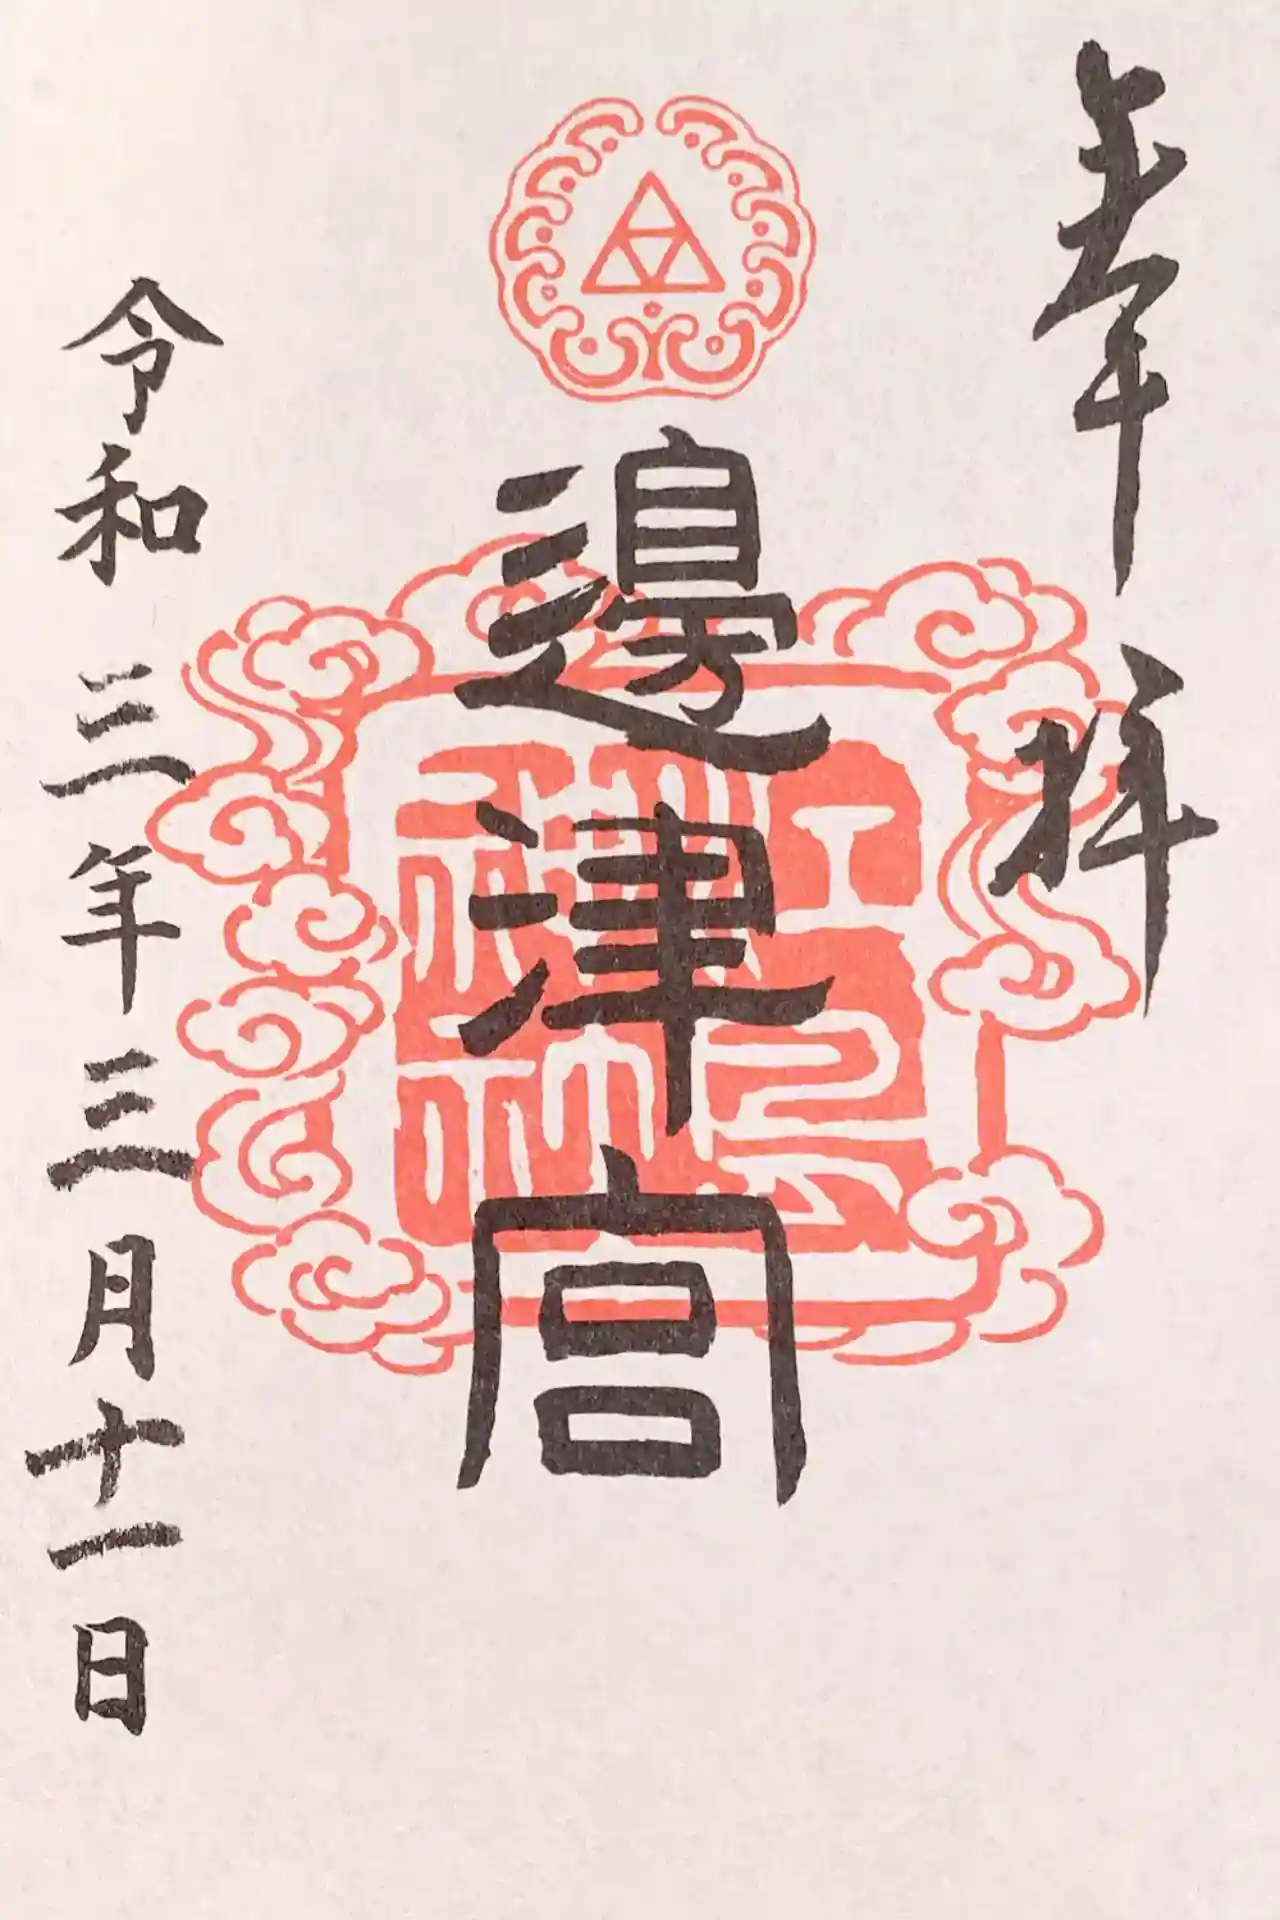 奉拝
邊津宮
令和三年三月十一日